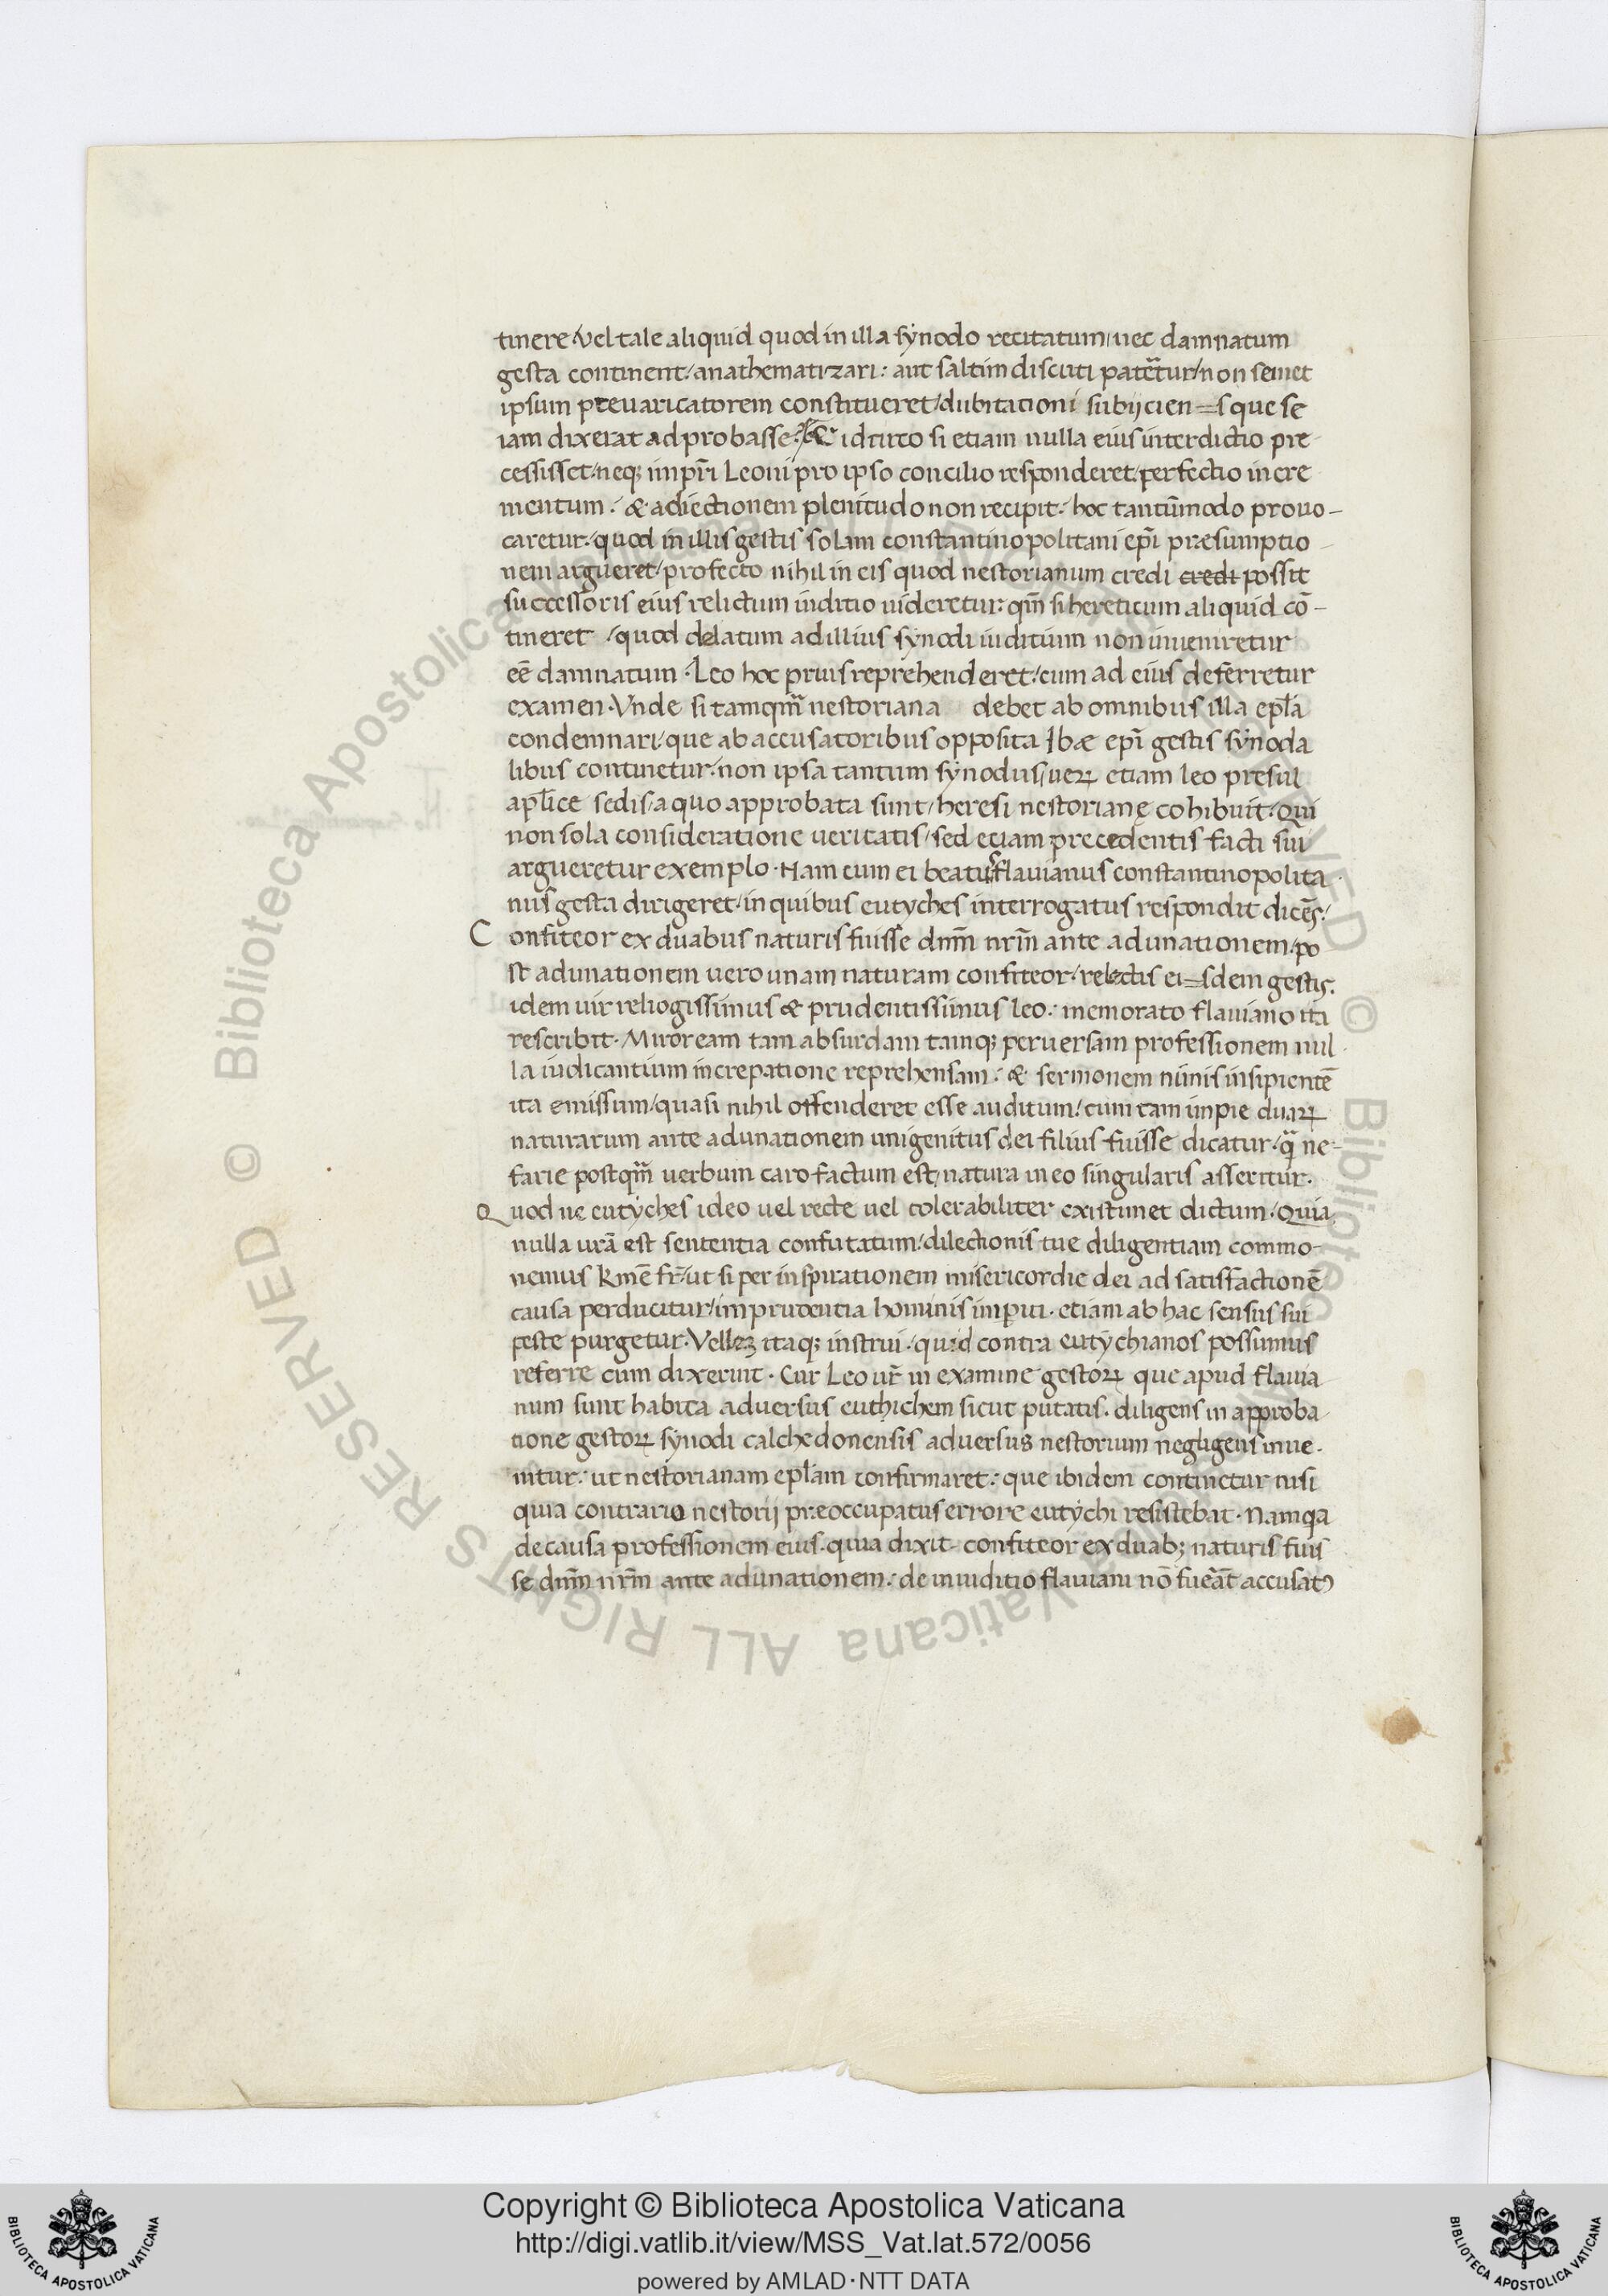 tinere/vel tale aliquid quod in illa synodo recitatum/nec damnatum
gesta continent/anathematizari: aut saltim discuti patēretur/non semet
ipsum prevaricatorem constitueret/dubitationi subijcien=s que se
iam dixerat adprobasse: & idcirco si etiam nulla eius interdictio pre
cessisset/neq; impr̄i Leoni pro ipso concilio responderet/perfectio incre
mentum: & adiectionem plenitudo non recipit: hoc tantūmodo provo-
caretur/quod in illis gestis solam constantinopolitani ep̄i præsumptio-
nem argueret/profecto nihil in eis quod nestorianum credi credi possit
successoris eius relictum iuditio uideretur: qm̄ si hereticum aliquid cō-
tineret /quod delatum ad illius synodi iuditium non inueniretur
eē damnatum. Leo hoc prius reprehenderet/cum ad eius deferretur
examen. Vnde si tamqm̄ nestoriana debet ab omnibus illa ep̄la
condemnari/que ab accusatoribus opposita Ibæ ep̄i gestis synoda
libus continetur/non ipsa tantum synodus/ueꝝ etiam leo presul
apl̄ice sedis/a quo approbata sunt/heresi nestorianę cohibuit. Qui
non sola consideratione veritatis/sed eciam precedentis facti sui
argueretur exemplo. Nam cum ei beatus flauianus constantinopolita
nus gesta dirigeret/in quibus eutyches interrogatus respondit dicēs/
Confiteor ex duabus naturis fuisse dnm̄ nrm̄ ante adunationem/po
st adunationem uero unam naturam confiteor/relectis ei=sdem gestis.
idem uir reliogissimus & prudentissimus leo: memorato flauiano ita
rescribit. Miror eam tam absurdam tamq; peruersam professionem nul-
la iudicantium increpatione reprehensam: & sermonem nimis insipientē
ita emissum/quasi nihil offenderet esse auditum/cum tam impie duaꝝ
naturarum ante adunationem unigenitus dei filius fuisse dicatur/qͣ ne-
farie postqm̄ uerbum caro factum est/natura in eo singularis asseritur.
Quod ne eutyches ideo uel recte uel tolerabiliter existimet dictum. Quia
nulla urā est sententia confutatum/dilectionis tue diligentiam commo-
nemus kmē fr̄/ut si per inspirationem misericordie dei ad satisfactionē
causa perducitur/imprutentia hominis imperiti. etiam ab hac sensus sui
peste purgetur. Vellez itaq; instrui/quid contra eutychianos possumus
referre cum dixerint. Cur Leo ur̄ in examine gestoꝝ que apud flauia
num sunt habita adversus euthichem sicut putatis. diligens in approba-
tione gestoꝝ synodi calchedonensis adversus nestorium negligens inue-
nitur: ut nestorianam ep̄lam confirmaret: que ibidem continetur nisi
quia contrario nestorij præoccupatus errore eutychi resistebat. Namqa
de causa professionem eius. quia dixit. confiteor ex duab; naturis fuis
se dnm̄ nrm̄ ante adunationem: de iniuditio flauiani nō fuerāt accusatꝰ